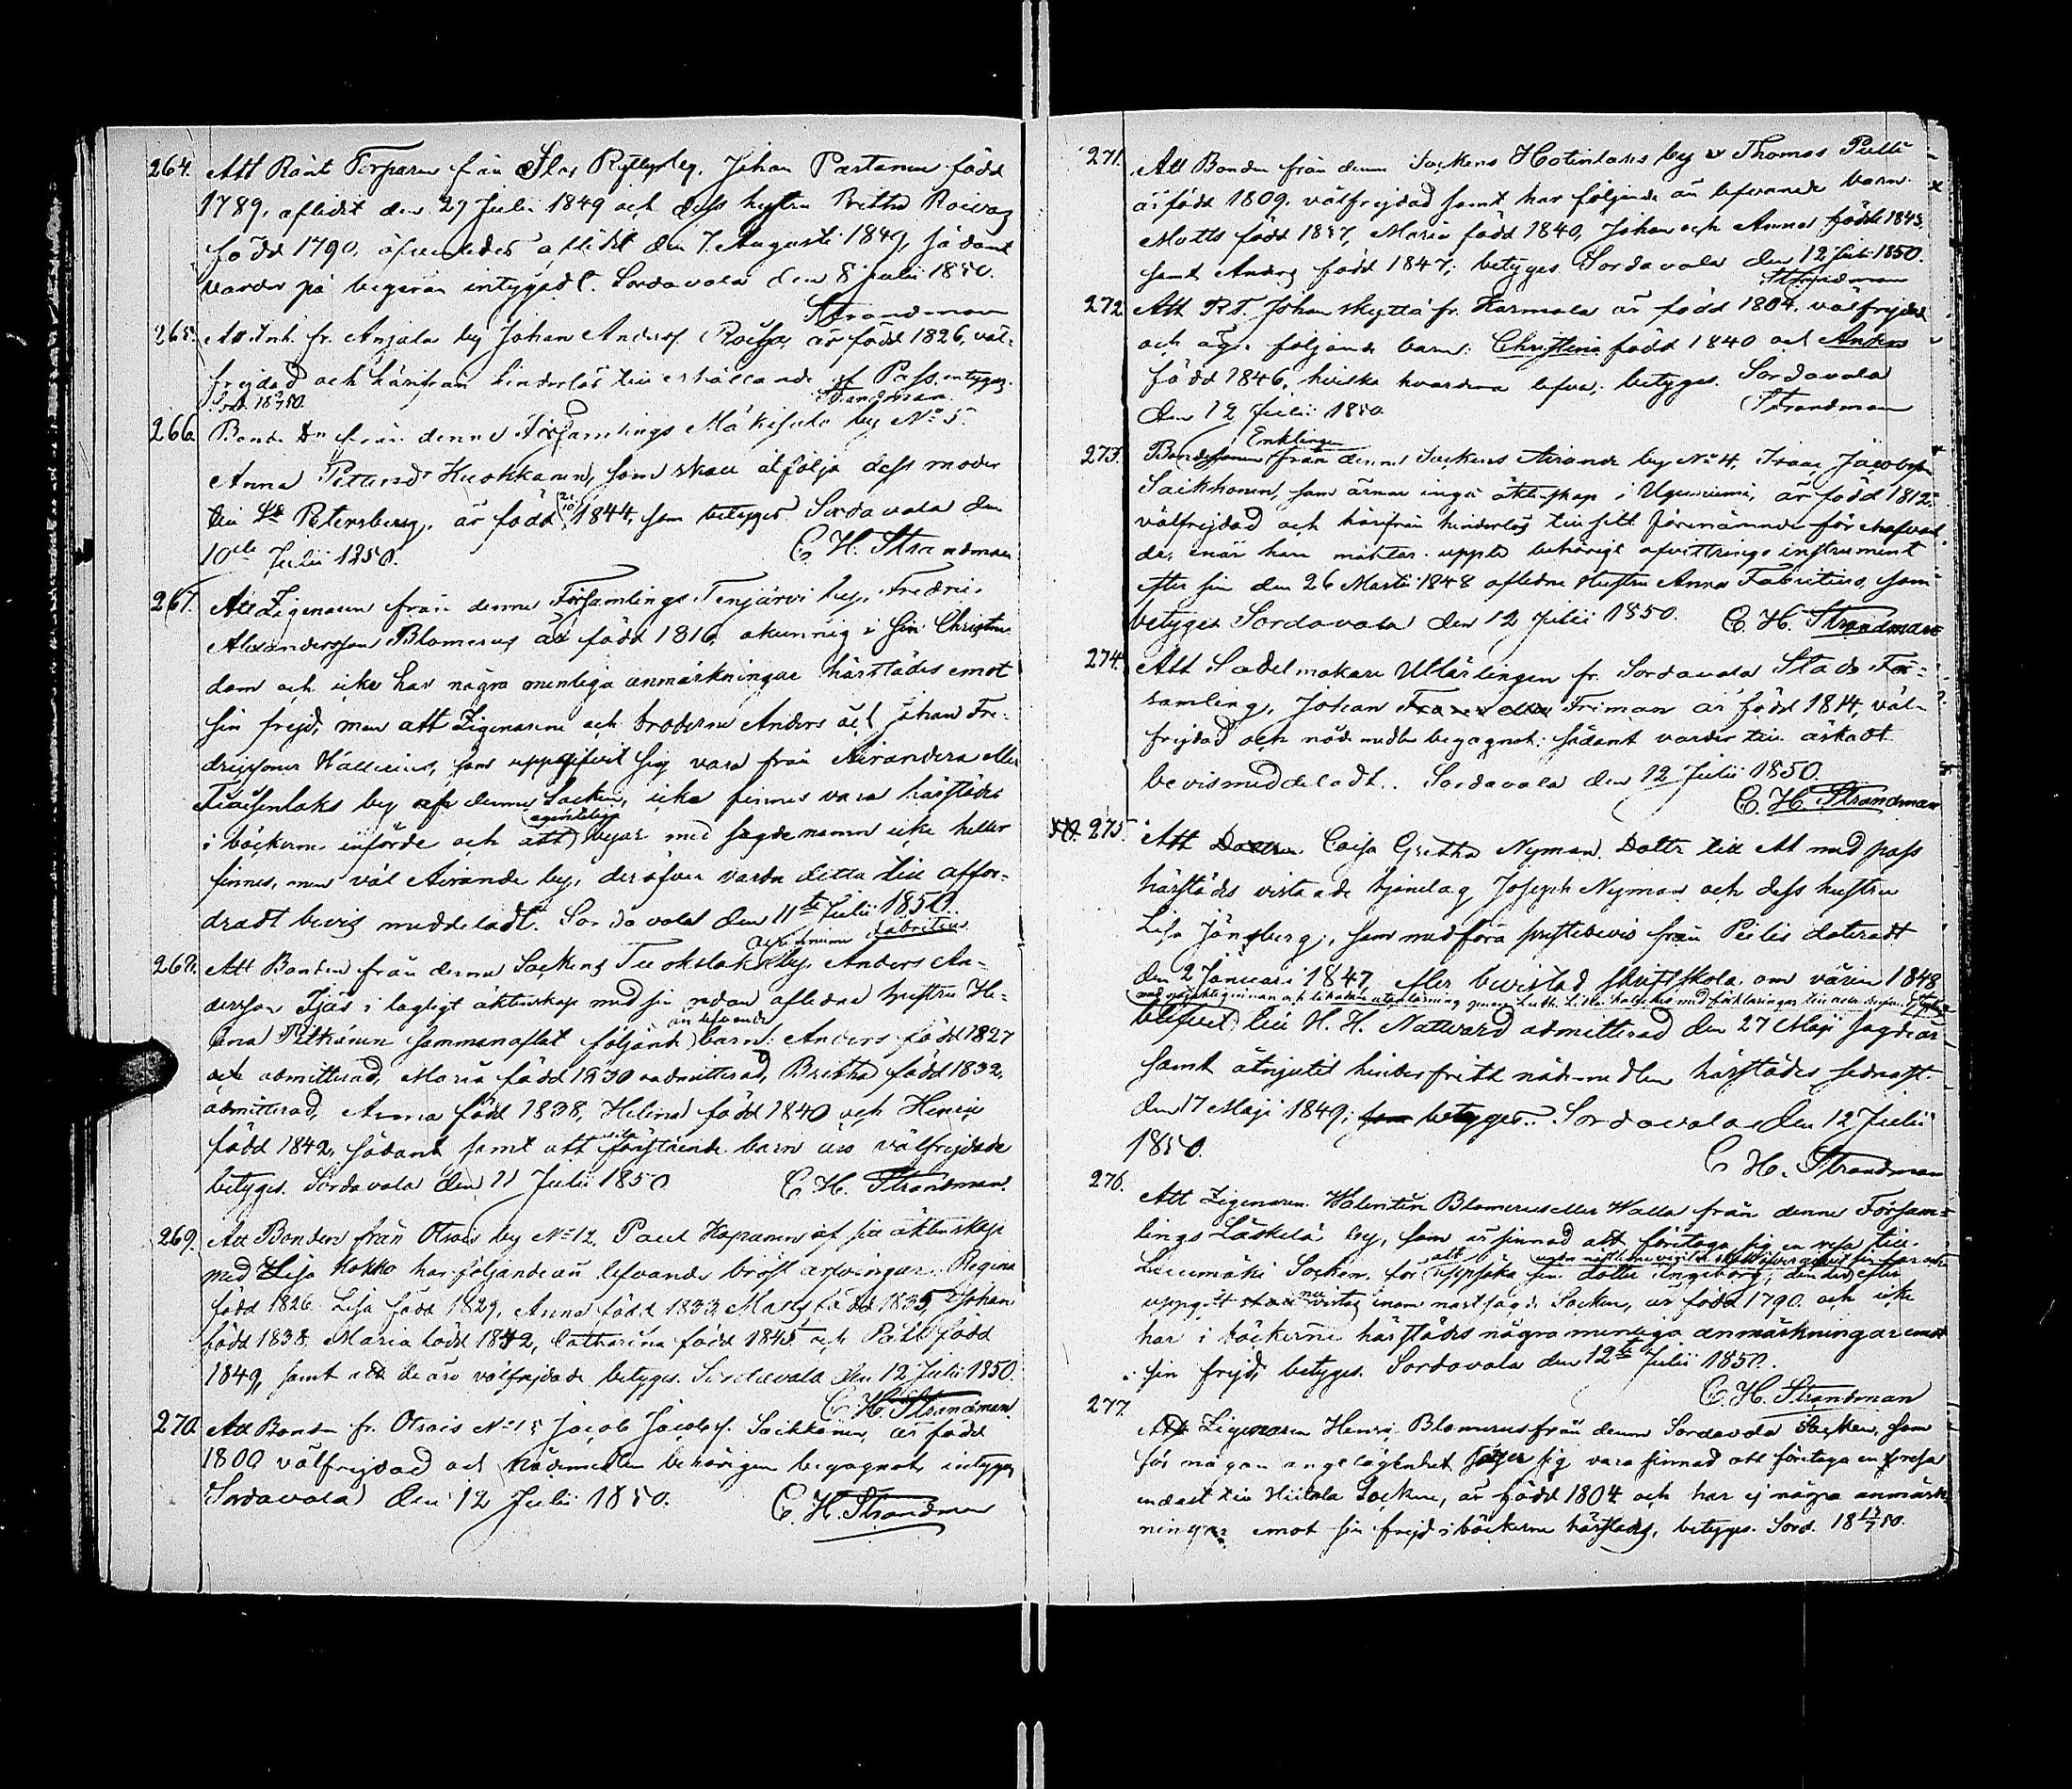 264. Att Ränt Torparen från Stor Rytty by, Johan Partanen född
1789, aflidit den 29 Julii 1849 och dess hustru Britha Roivas
född 1790, äfvenledes aflidit den 7. Augusti 1849, sådant
varder på begäran intygadt. Sordavala den 8 Julii 1850.
Strandman
265. Att Inh. fr. Anjala by Johan Anderss. Roissa, är född 1826, väl-
frejdad och härifrån hinderlös till erhållande af Pass, intygas.
Sord. 18 50. Strandman.
266. Bonde Dn från denna Församlings Mäkisalo by No 5.
Anna Pettersdr Huohkanen, som skall åtfölja dess moder
till St Petersburg, är född 1844, som betygas Sordavala den
10de Julii 1850. C. H. Strandman
267. Att Zigenaren från denna Församlings Tenjärvi by, Fredric
Alexandersson Blomerus är född 1816, okunnig i sin Christen
dom och icke har några menliga anmärkningar härstädes emot
sin frejd, men att Zigenarene och bröderne Anders och Johan Fre-
drikssöner Hällenius, som uppgifvit sig vara från Airandera eller
by af denna Socken, icke finnes vara härstädes
i böckerne införde och att egenteligen byar med sagde namn icke heller
finnes, men väl Airande by, deröfver varder detta till affor-
dradt bevis meddeladt. Sordavala den 11te Julii 1850.
Fabritius
268. Att Bonden från denna Sockens Tuokslaks by, Anders An-
dersson Tjäs i lagligt äktenskap med sin redan aflidna hustru He-
lena Pitkänen sammanaflat följande än lefvande barn: Anders född 1827
och admitterad, Maria född 1830 admitterad, Britha född 1832,
admitterad, Anna född 1838, Helena född 1840 och Henric
född 1842, sådant samt att förestående barn äro välfrejdade
betygas. Sordavala den 11 Julii 1850 C. H. Strandman.
269. Att Bonden från Otsois by No 12. Paul Hapanen af sin äktenskap
med Lisa Kokko har följande än lefvande bröst arfvingar: Regina
född 1826. Lisa född 1829, Anna född 1833 Matts född 1835, Johan
född 1838 Maria född 1842, Catharina född 1845 och Påhl född
1849, samt att de äro välfrejdade betygas. Sordavala den 12 Julii 1850.
C. H. Strandman.
270. Att Bonden fr. Otsois No 15 Jacob Jacobss. Saikkonen, är född
1800 välfrejdad och Nådemedlen behörigen begagnat, intygas
Sordavala den 12 Julii 1850. C. H. Strandman
271. Att Bonden från denna Sockens Hotinlaks by Thomas Pulli
är född 1809. välfrejdad samt har följande än lefvande barn
Matts född 1837, Maria född 1840, Johan och Anna födde 1843,
samt Anders född 1847; betygas Sordavala den 12 Julii 1850.
Strandman
272 Att R.T. Johan Skyttä fr. Karmala är född 1804. välfrejdad
och äger följande barn: Christina född 1840 och Anders
född 1846, hvilka hvardera lefva; betygas. Sordavala
den 12 Julii 1850. Strandman
Enklingen
273. Bondesonen från denna Sockens Airande by No 4, Isaac Jacobsson
Saikkonen, som ärnar ingå äktenskap i Uguniemi, är född 1812.
välfrejdad och härifrån hinderlös till sitt förenämnde förehafvan
de, enär han mäktar uppte behörigt afvittrings instrument
efter sin den 26 Martii 1848 aflidna Hustru Anna Fabritius, som
betygas Sordavala den 12 Julii 1850. C. H. Strandman
274. Att Sadelmakare Utlärlingen fr. Sordavala Stads För-
samling, Johan Friman är född 1814, väl-
frejdad och nådemedlen begagnat; sådant varder till äskadt
bevis meddeladt. Sordavala den 12 Julii 1850.
C. H. Strandman
275. Att Caisa Gretha Nyman, Dotter till Att med pass
härstädes vistande Joseph Nyman och dess hustru
Lisa Jängberg, som medföra prestebevis från Peilis dateradt
den 2 Januari 1847, efter bevistad skriftskola om våren 1848
blifvit till H. H. Nattvard admitterad den 27 Maji sagde år
samt åtnjutit hinderfritt nådemedlen härstädes sednast
den 17 Maji 1849; betygas. Sordavala den 12 Julii
1850. C. H. Strandman
276. Att Zigenaren Valentin Blomerus eller Halla från denna Försam-
lings Läskelä by, som är sinnad att företaga sig en resa till
Liccumäki Socken, för att uppsöka sin dotter Ingeborg,
uppgift vistas inom nästsagde Socken, är född 1790. och icke
har i böckerne härstädes några menliga anmärkningar emot
sin frejd, betygas. Sordavala den 12te Julii 1850.
C. H. Strandman
277. Att Zigenaren Henric Blomerus från denna Sordavala Socken, som
för någon angelägenhet säger sig vara sinnad att företaga en resa
endast till Hiitola Socken, är född 1804 och har ej några anmärk
ningar emot sin frejd i böckerne härstädes, betygas. Sord. 18 12/7 50.